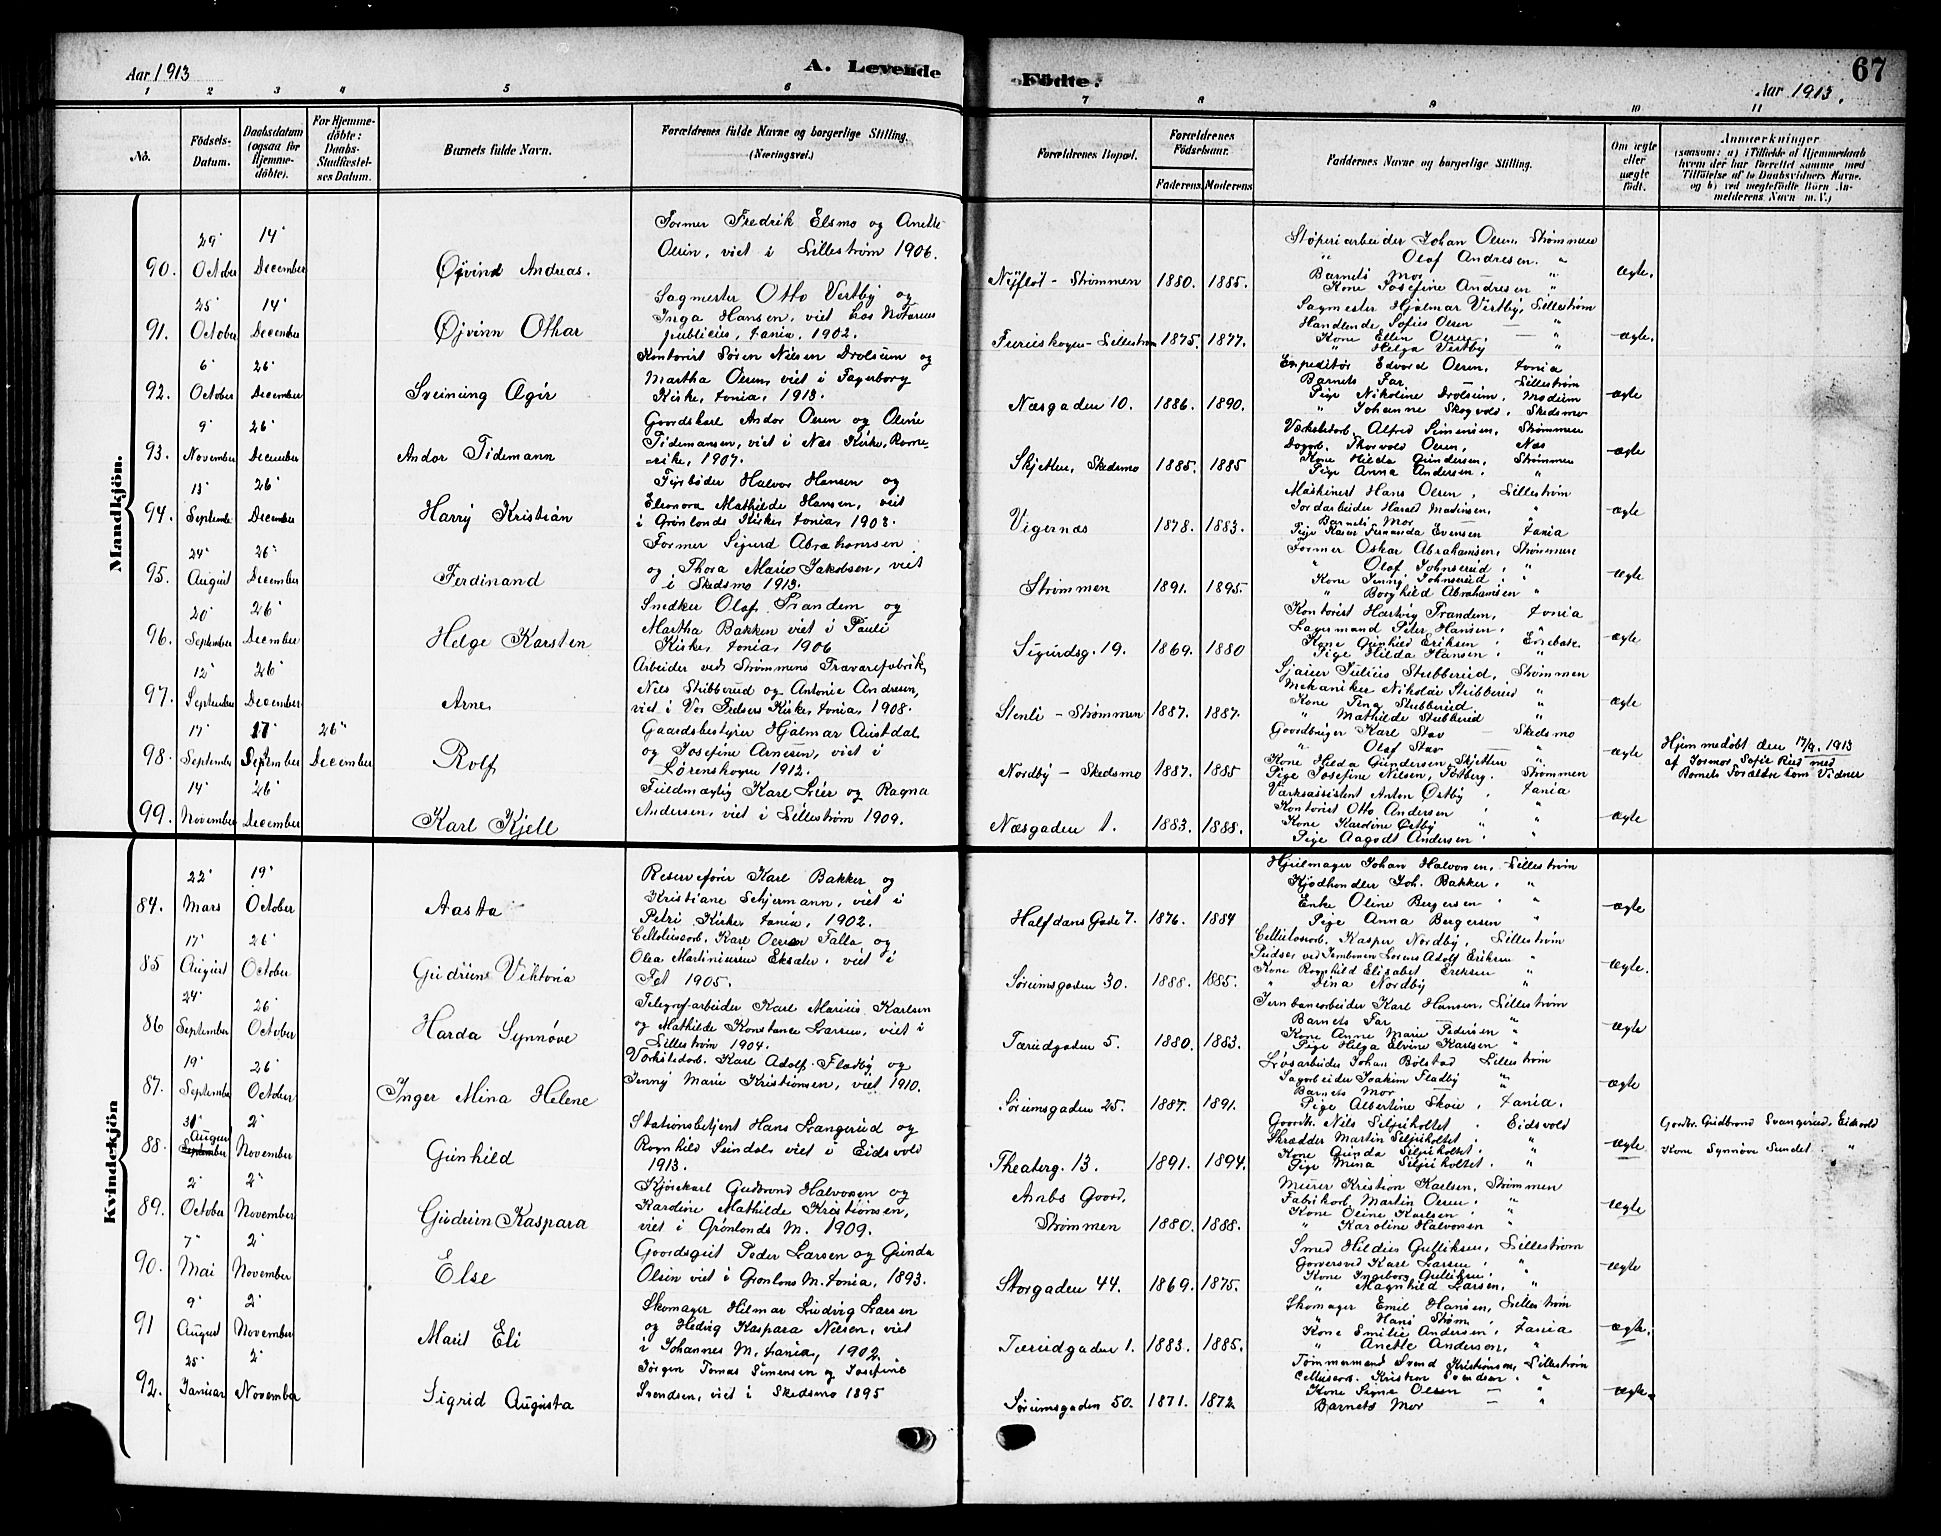 Aar 1913
A. Levende
Födte.
67
Aar 1913.
1 2 3 4 5 6 7 8 9 10 11
No.
Födsels-
Datum.
Daabsdatum
(ogsaa for
Hjemme-
döbte).
For Hjemme-
döbte:
Daabs-
Stadfæstel-
ses Datum.
Barnets fulde Navn.
Forældrenes fulde Navne og borgerlige Stilling.
(Næringsvei.)
Forældrenes Bopæl.
Forældrenes
Födselsaar.
Faderens. Moderens
Faddernes Navne og borgerlige Stilling.
Om ægte
eller
uægte
födt.
Anmærkninger
(saasom: a) i Tilfælde af Hjemmedaab
hvem der har forrettet samme med
Tilföielse af to Daabsvidners Navne.
og b) ved uægtefödte Börn An-
melderens Navn m. V.)
Mandkjön.
90. 29' October 14' December Øjvind Andreas.
Former Fredrik Elsmo og Anette
Olsen, viet i Lillestrøm 1906.
Nÿflot - Strømmen 1880. 1885.
Støperiarbeider Johan Olsen, Strømmen
" Olaf Andresen. "
Barnets Mor — "
Kone Josefine Andresen "
ægte.
91. 25' October 14' December Øjvinn Othar
Sagmester Otto Vestby og
Inga Hansen, viet hos Notarius
publicus, Xania, 1902.
Furuskogen - Lillestrøm 1875. 1877.
Sagmester Hjalmar Vestby, Lillestrøm
Handlende Sofus Olsen — "
Kone Ellen Olsen. — "
" Helga Vestby "
ægte.
92. 6' October 26' December Sveinung Ægir
Kontorist Søren Nilsen Drolsum og
Martha Olsen, viet i Fagerborg
Kirke, Xania, 1913.
Næsgaden 10. 1886. 1890.
Expeditør Edvard Olsen, Xania
Barnets Far. — Lillestrøm
Pige Nikoline Drolsum, Modum
" Johanne Skogvold, Skedsmo
ægte
93. 9' November 26' December Andor Tidemann
Gaardskarl Andor Olsen og Oline
Tidemansen, viet i Næs Kirke, Rome-
rike, 1907.
Skjetten, Skedsmo 1885. 1885
Værkstedarb. Alfred Simensen, Strømmen
Dagarb. Thorvald Olsen, Næs
Kone Hilda Gundersen, Strømmen
Pige Anna Andersen. "
ægte
94. 13' September 26' December Harrÿ Kristian
Fyrbøder Halvor Hansen og
Eleonora Mathilde Hansen, viet
i Grønlands Kirke, Xania, 1903.
Vigernæs 1878. 1883.
Maskinist Hans Olsen, Lillestrøm
Jordarbeider Harald Madinsen, "
Barnets Mor — "
Pige Karen Fernanda Evensen Xania
ægte
95. 24' August 26' December Ferdinand
Former Sigurd Abrahamsen
og Thora Marie Jakobsen, viet
i Skedsmo 1913.
Strømmen 1891. 1895.
Former Oskar Abrahamsen, Strømmen
" Olaf Johnserud, "
Kone Jenny Johnserud, "
" Borghild Abrahamsen "
ægte
96. 20' September 26' December Helge Karsten
Snedker Olaf Trandem og
Martha Bakken viet i Pauli
Kirke, Xania, 1906
Sigurdsg. 19. 1869. 1880
Kontorist Hartvig Trandem, Xania
Lagermand Peter Hansen, "
Kone Gunhild Eriksen, Enebak.
Pige Hilda Hansen, "
ægte
97. 12' September 26' December Arne
Arbeider ved Strømmens Travarefabrik,
Nils Stubberud og Antonie Andresen,
viet i Vor Frelsers Kirke, Xania, 1908.
Stenli - Strømmen 1887. 1887.
Sjauer Julius Stubberud, Strømmen
Mekaniker Nikolai Stubberud "
Kone Tina Stubberud "
" Mathilde Stubberud "
ægte
98. 17' September 17' September 26' December Rolf
Gaardsbestyrer Hjalmar Austdal
og Josefine Arnesen, viet i
Lørenskogen 1912.
Nordby - Skedsmo 1887. 1885
Gaardbruger Karl Stav — Skedsmo
" Olaf Stav — "
Kone Hilda Gundersen, Skjetten "
Pige Josefine Nilsen, Strømmen
ægte
Hjemmedøbt den 17/9. 1913
af Jormor Sofie Ried med
Barnets Foraldre som Vidner
99. 14' November 26' December Karl Kjell
Fuldmægtig Karl Lier og Ragna
Andersen, viet i Lillestrøm 1909.
Næsgaden 1. 1883. 1888.
Værksassistent Anton Østby, Xania
Kontorist Otto Andersen "
Kone Karoline Østby "
Pige Aagodt Andersen "
ægte
Kvindekjön
84. 22' Mars 19' October Aasta
Reservefører Karl Bakker og
Kristiane Schjermann, viet i
Petri Kirke, Xania, 1902.
Halfdans Gade 7. 1876. 1884
Hjulmager Johan Halvorsen, Lillestrøm
Kjødhandler Joh. Bakker, "
Enke Oline Bergersen "
Pige Anna Bergersen "
ægte
85 17' August 26' October Gudrun Viktoria
Cellulosearb. Karl Olsen Falla og
Olea Martiniussen Eksæter, viet i
Fet 1905.
Sørumsgaden 30. 1888. 1885.
Cellulosearb. Kasper Nordby, Lillestrøm
Pudser ved Jernbanen Lorens Adolf Eriksen "
Kone Ragnhild Elisabet Eriksen "
" Lina Nordby "
ægte.
86 24' September 26' October Harda Synnøve
Telegrafarbeider Karl Marius Karlsen
og Mathilde Konstance Larsen, viet i
Lillestrøm 1904.
Tærudgaden 5. 1880. 1883.
Jernbanearbeider Karl Hansen, Lillestrøm
Barnets Far — "
Kone Anne Marie Pedersen "
Pige Helga Elvine Karlsen "
ægte
87. 19' September 26' October Inger Mina Helene
Værkstedarb. Karl Adolf Fladby og
Jenny Marie Kristiansen, viet 1910.
Sørumsgaden 25. 1887. 1891.
Løsarbeider Johan Bolstad Lillestrøm
Sagarbeider Joakim Fladby "
Barnets Mor — "
Pige Albertine Skoie, Xania.
ægte
88. 31' August 2' November Gunhild
Stationsbetjent Hans Svangerud og
Ragnhild Sundet viet i Eidsvold
1913.
Theaterg. 13. 1891. 1894.
Gaardbr. Nils Seljuholtet, Eidsvold
Skrædder Martin Seljuholtet, "
Kone Gunda Seljuholtet, "
Pige Mina Seljuholtet, "
ægte
Gardbr. Gudbrand Svangerud, Eidsvold
Kone Synnøve Sundet, "
89. 2' October 2' November Gudrun Kaspara
Kjørekarl Gudbrand Halvorsen og
Karoline Mathilde Kristiansen,
viet i Grønlands M. 1909.
Anbs Gaard,
Strømmen 1880. 1888.
Murer Kristian Karlsen, Strømmen
Fabrikarb. Martin Olsen, "
Kone Oline Karlsen, "
" Karoline Halvorsen "
ægte
90. 7' Mai 2' November Else
Gaardsgut Peder Larsen og Gunda
Olsen viet i Grønlans M. Xania, 1893.
Storgaden 44. 1869. 1875.
Smed Hildius Gulliksen, Lillestrøm
Garversvd Karl Larsen, "
Kone Ingeborg Gulliksen, "
" Magnhild Larsen, "
ægte
91 9' August 2' November Marit Eli
Skomager Hilmar Ludvig Larsen
og Hedvig Kaspara Nilsen, viet
i Johannes M. Xania, 1902.
Tærudgaden 1. 1883. 1885.
Skomager Emil Hansen, Lillestrøm
" Hans Strøm, "
Kone Emilie Andersen, Xania
" Anette Anderson, "
ægte.
92. 25' Januar 2' November Sigrid Augusta
Jørgen Tomas Simensen og Josefine
Svendsen, viet i Skedsmo 1895
Sørumsgaden 50. 1871. 1872
Tømmermand Svend Kristiansen, Lillestrøm
Cellulosearb. Kristian Svendsen, "
Kone Signe Olsen — "
Barnets Mor — "
ægte.